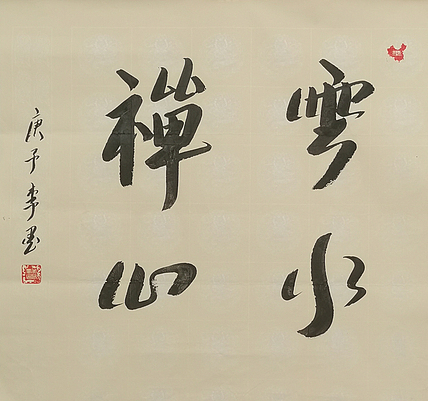 雲水
禪心
庚子李墨